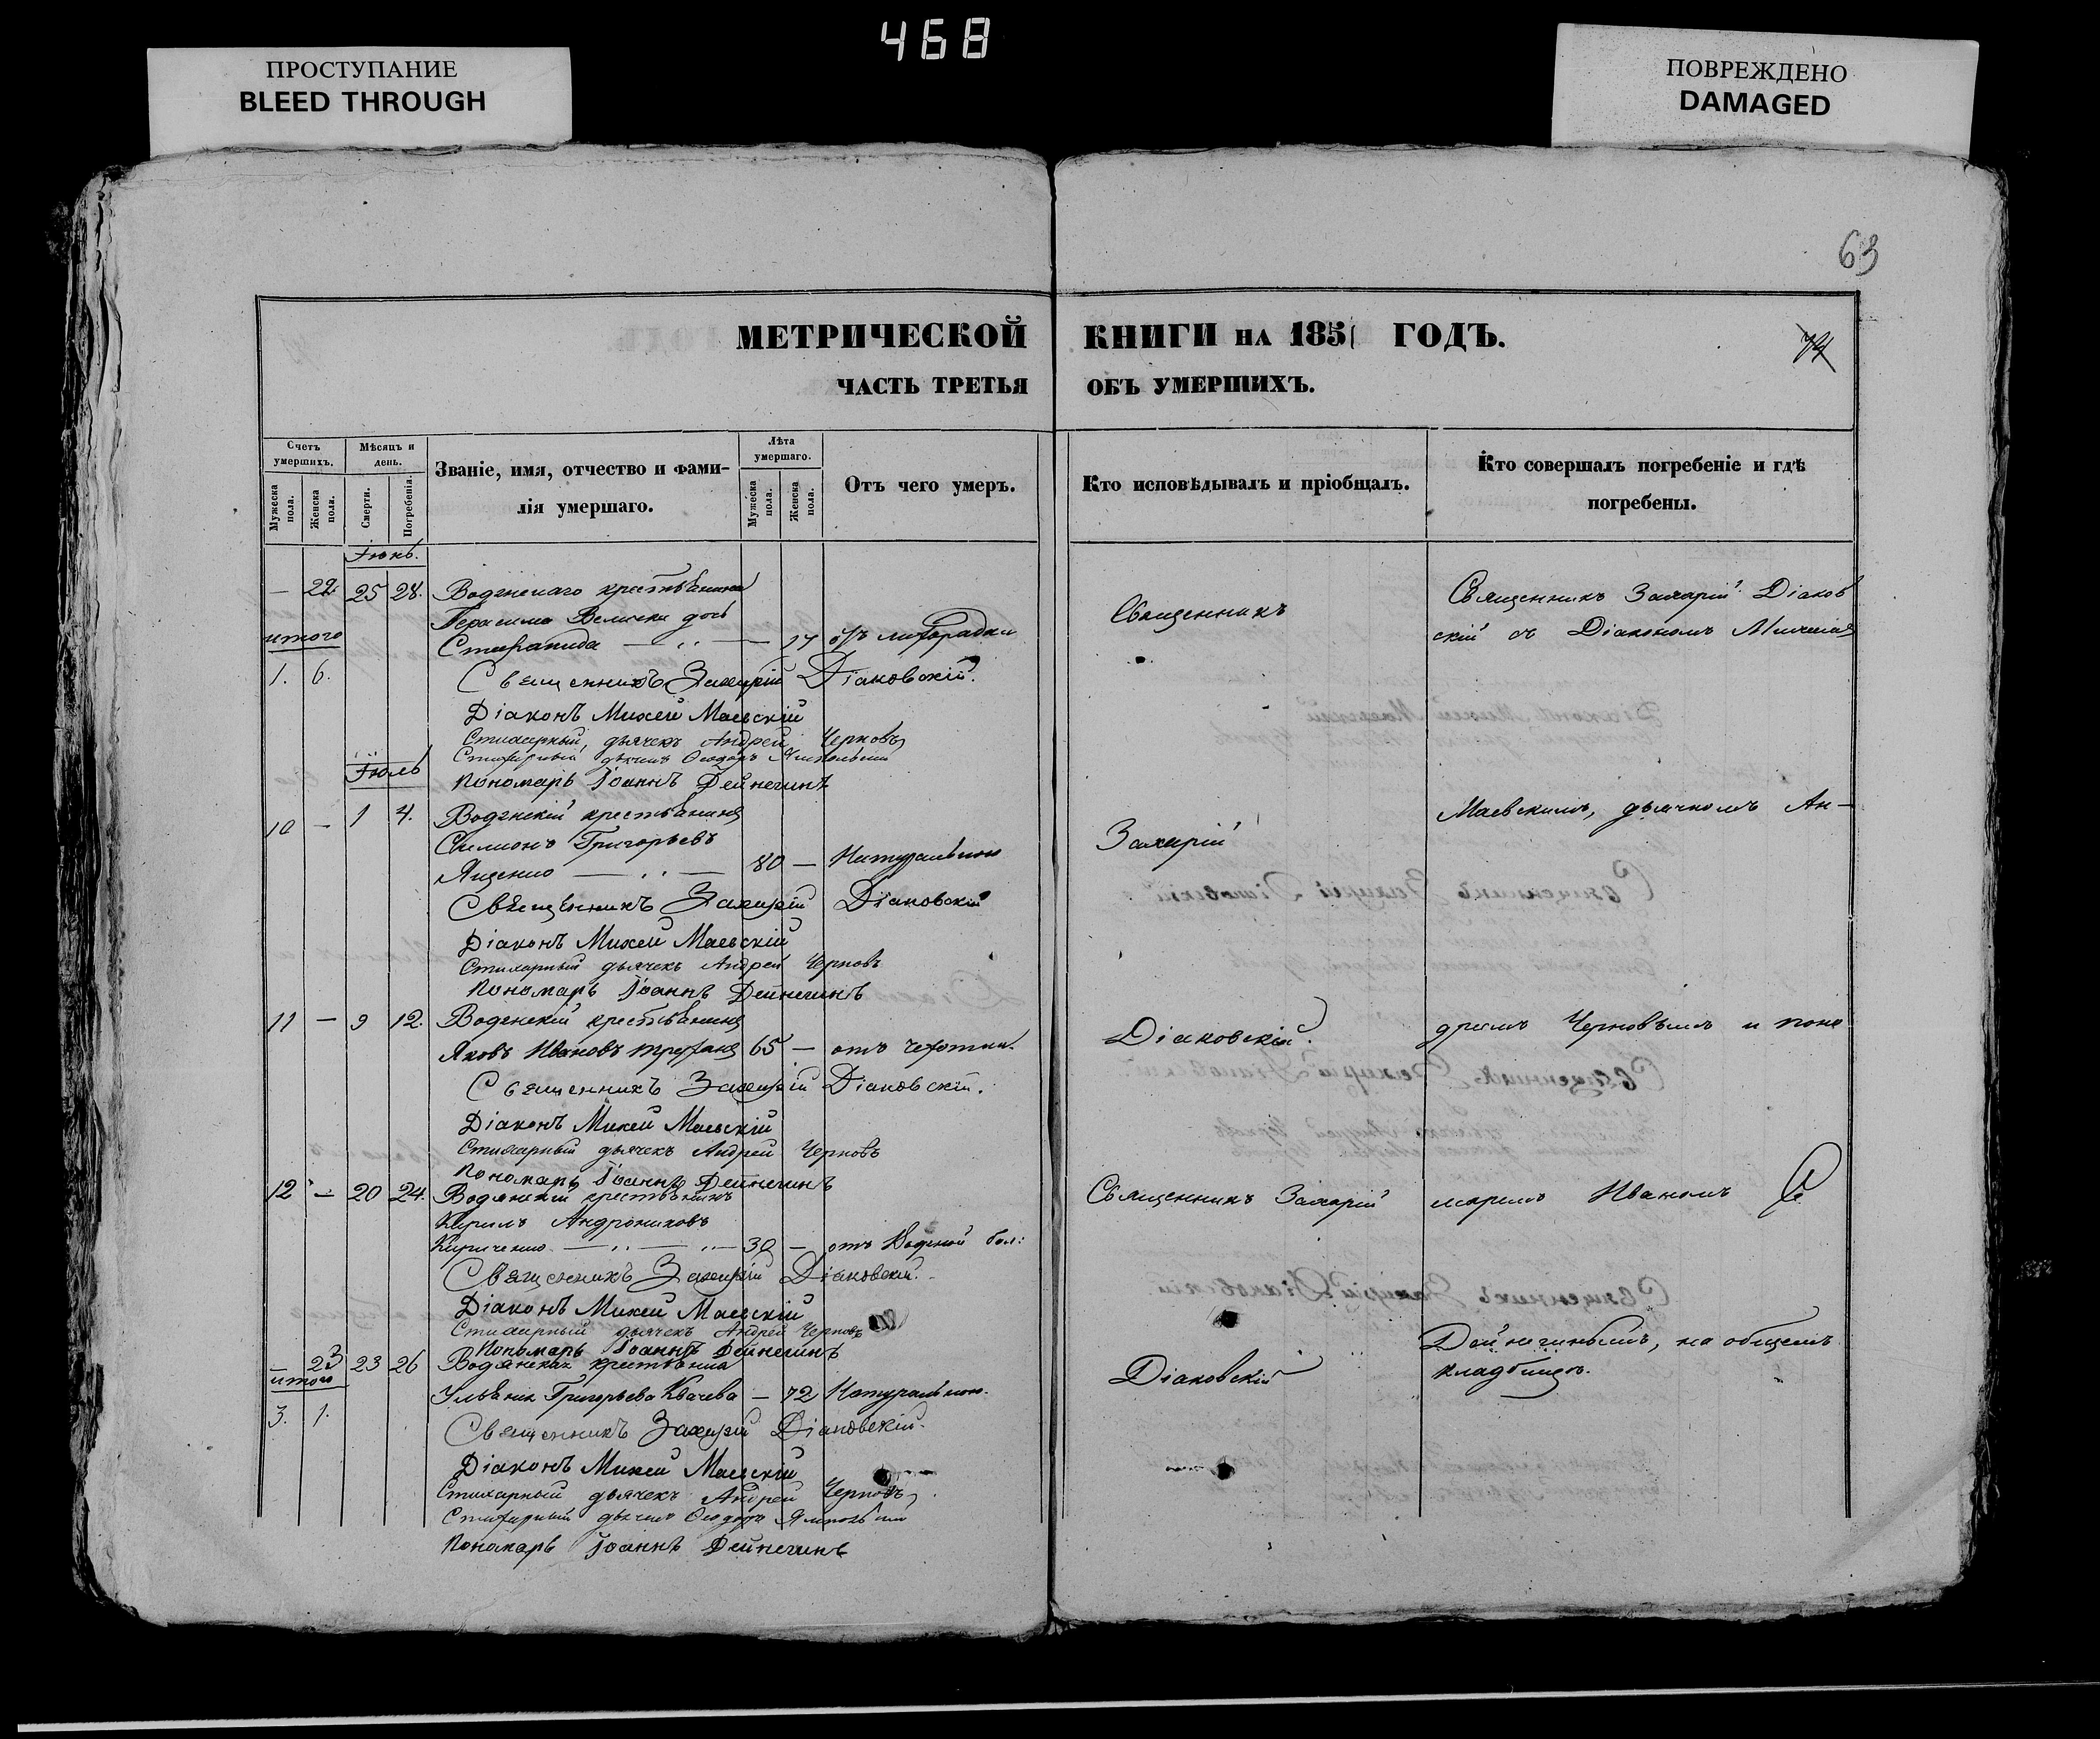 468
ПРОСТУПАНИЕ
BLEED THROUGH
ПОВРЕЖДЕНО
DAMAGED
63
МЕТРИЧЕСКОЙ КНИГИ НА 1851 ГОДЪ.
74
ЧАСТЬ ТРЕТЬЯ ОБЪ УМЕРШИХЪ.
Счетъ умершихъ.
Мужеска пола.
Женска пола.
Мѣсяцъ и день.
Смерти.
Погребенія.
Званіе, имя, отчество и фами-
лія умершаго.
Лѣта умершаго.
Мужеска пола.
Женска пола.
Отъ чего умеръ.
Кто исповѣдывалъ и пріобщалъ.
Кто совершалъ погребеніе и гдѣ
погребены.
Іюнь.
— 22 25 28. Водянскаго крестьянина
Герасима дочь
итого — 17 отъ лихорадки
1. 6. Священникъ Захарій Діаковскій.
Діаконъ Михей Маевскій
Стихарный дьячекъ Андрей Черновъ
Стихарный дьячекъ Ѳеодоръ
Іюль
Пономарь Іоаннъ Дейнегинъ
10 — 1 4. Водянскій крестьянинъ
Симіонъ Григорьевъ
Яценко 80 — Натуральною
Священникъ Захарій Діаковскій
Діаконъ Михей Маевскій
Стихарный дьячекъ Андрей Черновъ
Пономарь Іоаннъ Дейнегинъ
11 — 9 12. Водянскій крестьянинъ
Яковъ Ивановъ 65 — отъ чахотки.
Священникъ Захарій Діаковскій.
Діаконъ Михей Маевскій
Стихарный дьячекъ Андрей Черновъ
Пономарь Іоаннъ Дейнегинъ
12 — 20 24. Водянскій крестьянинъ
Кирилъ Андрониковъ
Кириченко 30 — отъ Водяной бол:
Священникъ Захарій Діаковскій.
Діаконъ Михей Маевскій
Стихарный дьячекъ Андрей Черновъ
Пономарь Іоаннъ Дейнегинъ
— 23 23 26 Водянская крестьянка
итого
Ульяна Григорьева Квачева — 72 Натуральною.
3. 1. Священникъ Захарій Діаковскій.
Діаконъ Михей Маевскій
Стихарный дьячекъ Андрей Черновъ
Стихарный дьячекъ Ѳеодоръ
Пономарь Іоаннъ Дейнегинъ
Священникъ
Захарій
Діаковскій.
Священникъ Захарій
Діаковскій
Священникъ Захарій Діаков
скій съ Діакономъ Михеем
Маевскимъ, дьячкомъ Ан-
дреемъ Черновымъ и поно
маремъ Иваномъ
Дейнегинымъ, на общемъ
кладбищѣ.